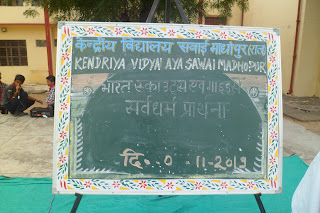 केन्द्रीय विद्यालय सवाई माधोपुर(राज)
KENDRIYA VIDYALAYA SAWAI MADHOPUR
भारत स्काउट्स एवं गाइड्स
सर्वधर्म प्राथना
दि. 0 11-2019